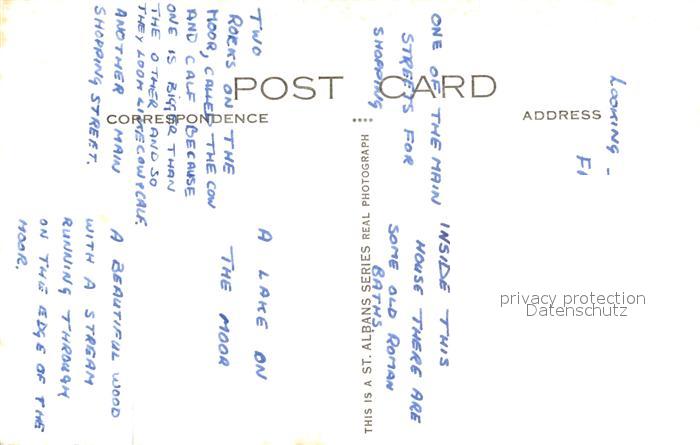 POST CARD
CORRESPONDENCE
ADDRESS
THIS IS A ST. ALBANS SERIES REAL PHOTOGRAPH
LOOKING -
FI
ONE OF THE MAIN
STREETS FOR
SHOPPING
INSIDE THIS
HOUSE THERE ARE
SOME OLD ROMAN
BATHS.
TWO
ROCKS ON THE
MOOR, CALLED THE COW
AND CALF BECAUSE
ONE IS BIGGER THAN
THE OTHER AND SO
THEY LOOK LIKE COW & CALF.
A LAKE ON
THE MOOR
ANOTHER MAIN
SHOPPING STREET.
A BEAUTIFUL WOOD
WITH A STREAM
RUNNING THROUGH
ON THE EDGE OF THE
MOOR.
privacy protection
Datenschutz